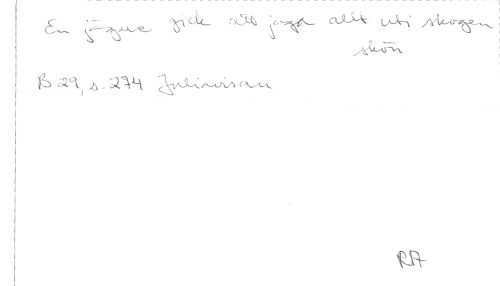 En jägare gick att jaga allt uti skogen
skön
B 29, s. 274 Juliavisan
RA